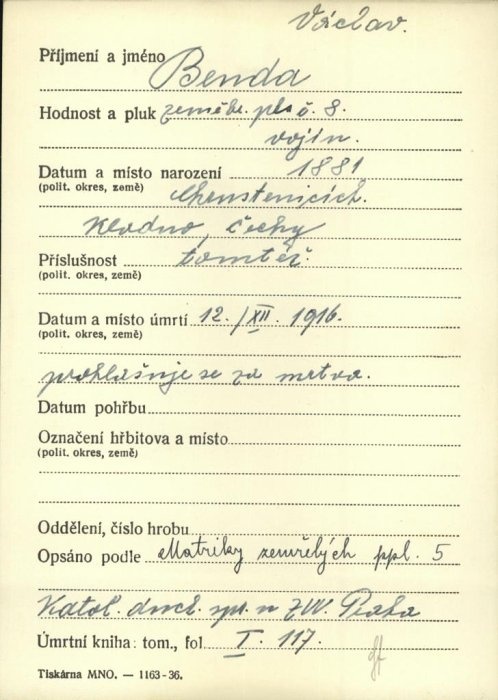 Václav.
Příjmení a jméno Benda
Hodnost a pluk zeměbr. pl. č. 8.
vojín.
Datum a místo narození 1881
(polit. okres, země) Chrustenicích.
Kladno, Čechy
Příslušnost tamtéž.
(polit. okres, země)
Datum a místo úmrtí 12./XII. 1916.
(polit. okres, země)
prohlašuje se za mrtva.
Datum pohřbu
Označení hřbitova a místo
(polit. okres, země)
Oddělení, číslo hrobu
Opsáno podle Matriky zemřelých ppl. 5
Katol. duch. spr. u ZVV. Praha
Úmrtní kniha: tom., fol I. 117.
Tiskárna MNO. — 1163-36.